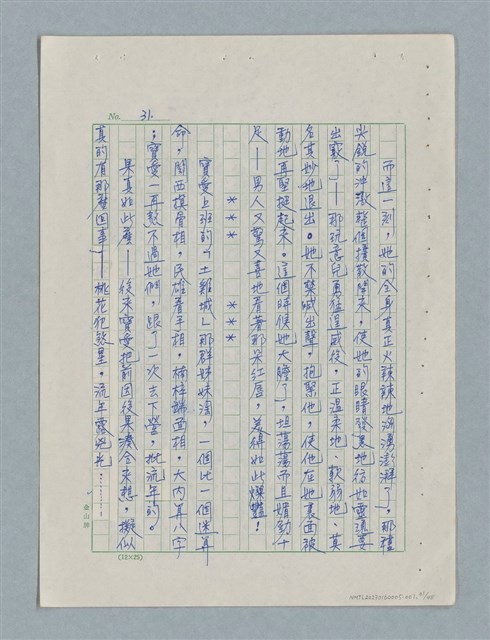 No. 31.
而這一刻，她的全身真正火辣辣地洶湧澎湃了，那種
尖銳的沖激整個擴散開來，使她的眼睛發異地彷如靈魂要
出竅了——那玩意兒勇猛逞威後，正溫柔地、軟弱地、莫
名其妙地退出。她不禁喊出聲，抱緊他，使他在她裏面被
動地再堅挺起來。這個時候她大膽了，坦蕩蕩而且媚勁十
足——男人又驚又喜地看著那朵紅唇，美得如此燦豔！
＊＊＊　＊＊＊
寶愛上班的「土雞城」那群姊妹淘，一個比一個迷算
命。關西摸骨相，民雄看手相，楠梓論面相，大內算八字
；寶愛一再熬不過她們，跟了一次去下營，批流年的。
果真如此應——後來寶愛把前因後果湊合來想，擬似
真的有那麼回事——桃花犯煞星，流年露兇光………
金山牌
(12×25)
NMTL20230160005-001, 31/45